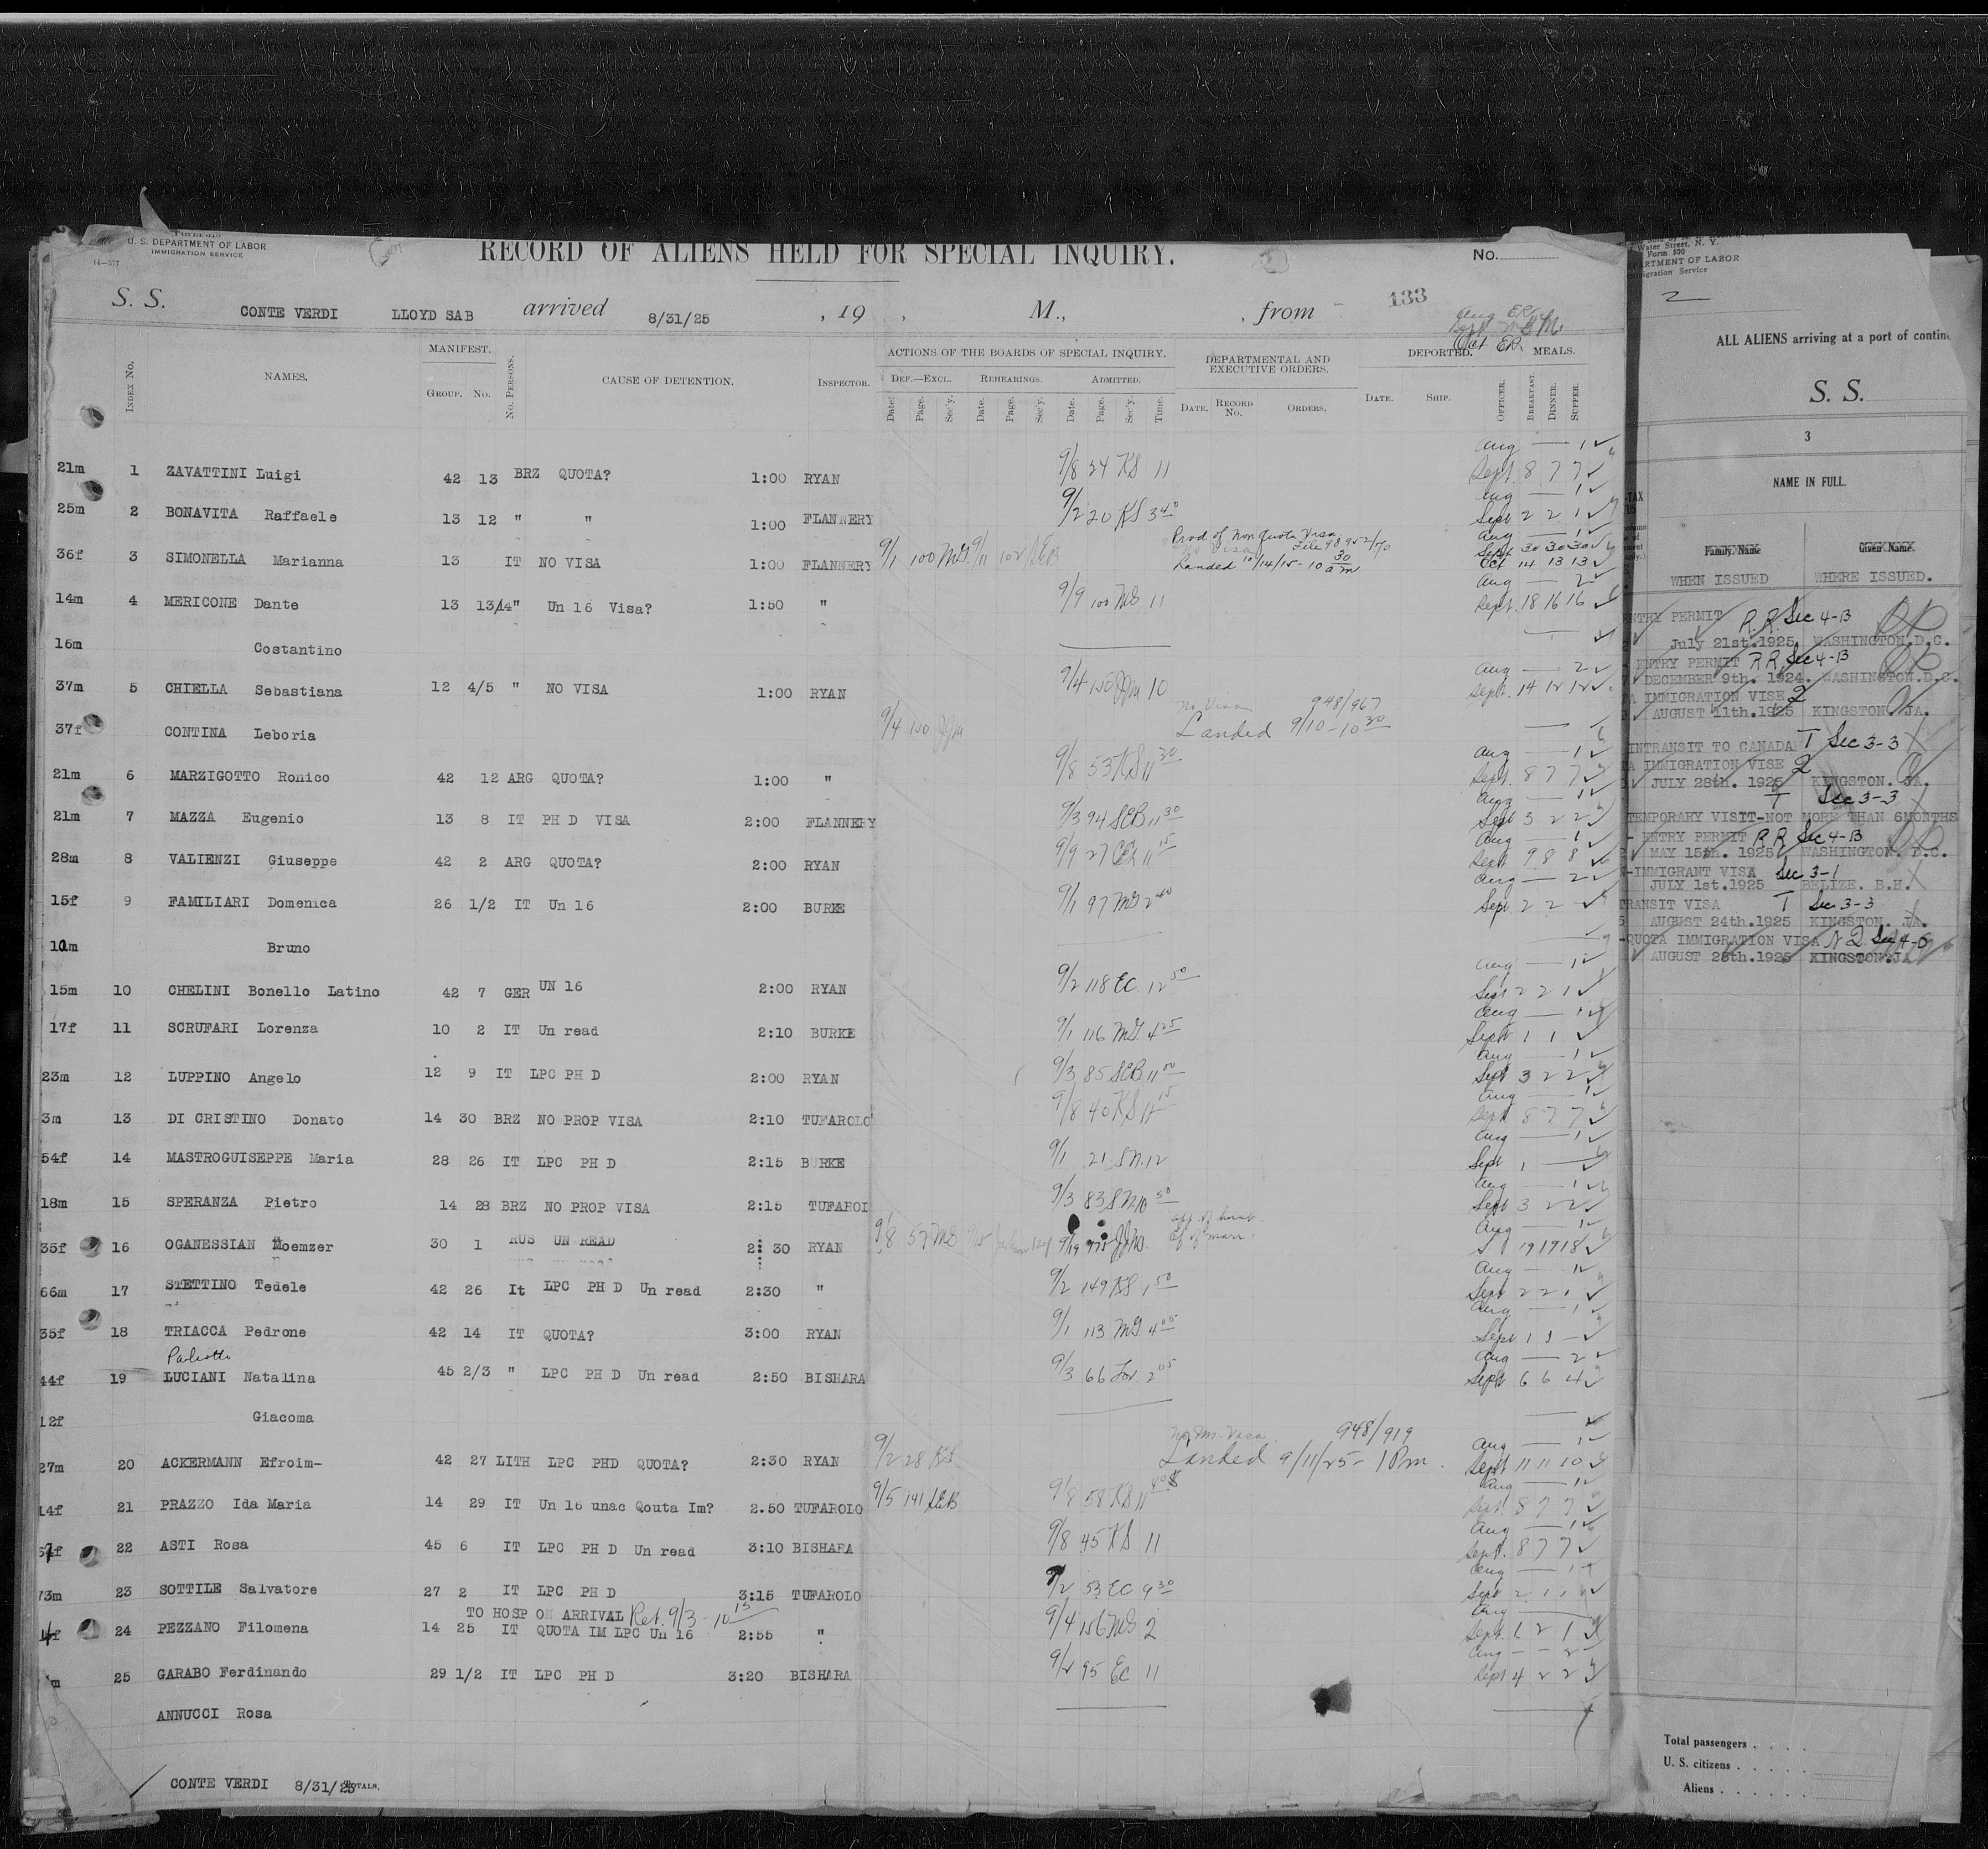 U. S. DEPARTMENT OF LABOR
IMMIGRATION SERVICE
14—577
RECORD OF ALIENS HELD FOR SPECIAL INQUIRY.
No.
133
S. S. CONTE VERDI LLOYD SAB arrived 8/31/25 , 19 , M., , from
Aug ER
Oct ER
INDEX No. NAMES. MANIFEST. GROUP. No. No. PERSONS. CAUSE OF DETENTION. INSPECTOR. ACTIONS OF THE BOARDS OF SPECIAL INQUIRY. DEPARTMENTAL AND EXECUTIVE ORDERS. DEPORTED. MEALS.
DEF.—EXCL. REHEARINGS. ADMITTED.
Date. Page. Sec'y. Date. Page. Sec'y. Date. Page. Sec'y. Time. DATE. RECORD No. ORDERS. DATE. SHIP. OFFICER. BREAKFAST. DINNER. SUPPER.
Aug — 1
21m 1 ZAVATTINI Luigi 42 13 BRZ QUOTA? 1:00 RYAN 9/8 24 KS 11 Sept 8 7 7
Aug — 1
25m 2 BONAVITA Raffaele 13 12 " " 1:00 FLANNERY 9/2 20 KS 3 40 Sept 2 2 1
Prod of Non Quota Visa Aug — 1
36f 3 SIMONELLA Marianna 13 IT NO VISA 1:00 FLANNERY 9/1 100 MG 9/11 102 SEB Sept 30 30 30
Landed 10/14/15 - 10 30 am Oct 14 13 13
Aug — 2
14m 4 MERICONE Dante 13 13/14" Un 16 Visa? 1:50 " 9/9 100 MG 11 Sept. 18 16 16
16m Costantino
Aug — 2
37m 5 CHIELLA Sebastiana 12 4/5 " NO VISA 1:00 RYAN 9/4 150 JJM 10 Sept. 14 12 12
No Visa 948/967
37f CONTINA Leboria 9/4 150 JJM Landed 9/10 - 10 30
Aug — 1
21m 6 MARZIGOTTO Ronico 42 12 ARG QUOTA? 1:00 " 9/8 53 KS 11 30 Sept. 8 7 7
Aug — 1
21m 7 MAZZA Eugenio 13 8 IT PH D VISA 2:00 FLANNERY 9/3 94 SEB 11 30 Sept 3 2 2
Aug — 1
28m 8 VALIENZI Giuseppe 42 2 ARG QUOTA? 2:00 RYAN 9/9 27 11 15 Sept 9 8 8
Aug — 2
15f 9 FAMILIARI Domenica 26 1/2 IT Un 16 2:00 BURKE 9/1 97 MG 2 40 Sept 2 2 —
10m Bruno
Aug — 1
15m 10 CHELINI Bonello Latino 42 7 GER UN 16 2:00 RYAN 9/2 118 EC 12 50 Sept 2 2 1
Aug — 1
17f 11 SCRUFARI Lorenza 10 2 IT Un read 2:10 BURKE 9/1 116 MG 4 25 Sept 1 1
Aug — 1
23m 12 LUPPINO Angelo 12 9 IT LPC PH D 2:00 RYAN 9/3 85 SEB 11 00 Sept 3 2 2
Aug — 1
3m 13 DI CRISTINO Donato 14 30 BRZ NO PROP VISA 2:10 TUFAROLO 9/8 40 KS 11 15 Sept 8 7 7
Aug — 1
54f 14 MASTROGUISEPPE Maria 28 26 IT LPC PH D 2:15 BURKE 9/1 21 SN 12 Sept 1 —
Aug — 1
18m 15 SPERANZA Pietro 14 28 BRZ NO PROP VISA 2:15 TUFAROL 9/3 83 SN 10 50 Sept 3 2 2
Aug — 1
35f 16 OGANESSIAN Moemzer 30 1 RUS UN READ 2:30 RYAN 9/8 57 MG 9/19 JJM. 19 19 18
Aug — 1
66m 17 STETTINO Tedele 42 26 It LPC PH D Un read 2:30 " 9/2 149 KS 1 50 Sept 2 2 1
Aug — 1
35f 18 TRIACCA Pedrone 42 14 IT QUOTA? 3:00 RYAN 9/1 113 MG 4 05 Sept 1 1 —
Aug — 2
44f 19 LUCIANI Natalina 45 2/3 " LPC PH D Un read 2:50 BISHARA 9/3 66 2 05 Sept 6 6 4
12f Giacoma
948/919 Aug — 1
27m 20 ACKERMANN Efroim- 42 27 LITH LPC PHD QUOTA? 2:30 RYAN 9/2 28 KS Landed 9/11/25 - 1 Pm. Sept 11 11 10
Aug — 1
14f 21 PRAZZO Ida Maria 14 29 IT Un 16 unac Qouta Im? 2.50 TUFAROLO 9/5 141 SEB 9/8 58 KS 11 40 Sept. 8 7 7
Aug — 1
22 ASTI Rosa 45 6 IT LPC PH D Un read 3:10 BISHARA 9/8 45 KS 11 Sept. 8 7 7
Aug — 1
73m 23 SOTTILE Salvatore 27 2 IT LPC PH D 3:15 TUFAROLO 9/2 53 EC 9 30 Sept 2 1 1
TO HOSP ON ARRIVAL Ret. 9/3 - 10 15 Aug —
24 PEZZANO Filomena 14 25 IT QUOTA IM LPC Un 16 2:55 " 9/4 156 MG 2 Sept. 1 2 1
Aug — 2
25 GARABO Ferdinando 29 1/2 IT LPC PH D 3:20 BISHARA 9/2 95 EC 11 Sept 4 2 2
ANNUCCI Rosa
CONTE VERDI 8/31/25 TOTALS.
Water Street, N. Y.
Form 500
DEPARTMENT OF LABOR
Immigration Service
2
ALL ALIENS arriving at a port of contin
S. S.
3
NAME IN FULL.
Family Name Given Name
WHEN ISSUED WHERE ISSUED.
ENTRY PERMIT R.R. Sec 4-B
July 21st.1925 WASHINGTON.D.C.
ENTRY PERMIT R R, Sec 4-B
DECEMBER 9th. 1924. WASHINGTON.D.C.
IMMIGRATION VISE 2
AUGUST 11th.1925 KINGSTON. JA.
INTRANSIT TO CANADA T Sec 3-3
IMMIGRATION VISE 2
JULY 28th. 1925 KINGSTON. JA.
T Sec 3-3
TEMPORARY VISIT-NOT MORE THAN 6MONTHS
ENTRY PERMIT R R Sec 4-B
MAY 15th. 1925 WASHINGTON. D.C.
-IMMIGRANT VISA Sec 3-1
JULY 1st.1925 BELIZE. B.H.
TRANSIT VISA T Sec 3-3
AUGUST 24th.1925 KINGSTON. JA.
-QUOTA IMMIGRATION VISA N Q Sec 4-
AUGUST 28th.1925 KINGSTON.JA
Total passengers . . . .
U. S. citizens . . . . .
Aliens . . . . . .